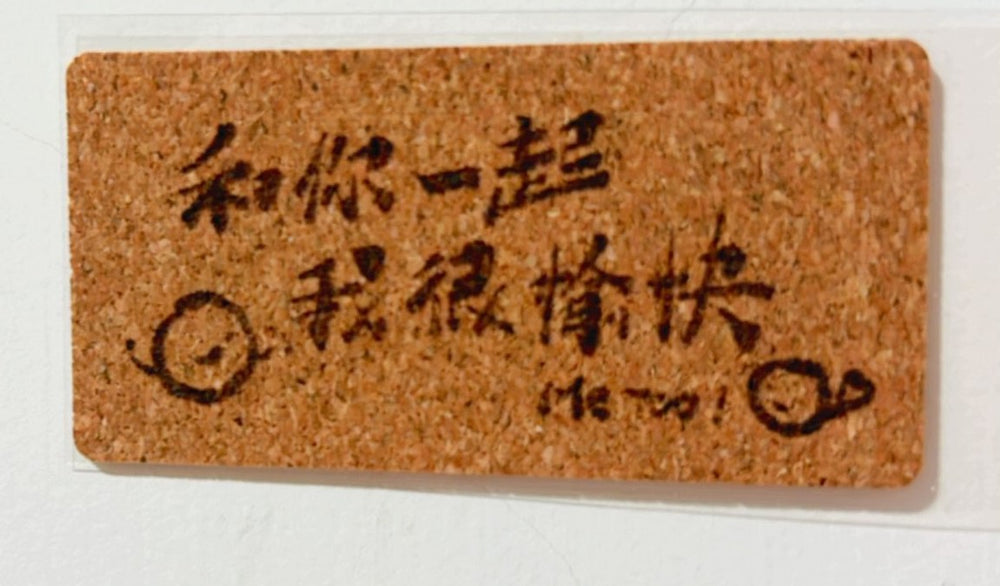 和你一起
我很愉快
Me Too!